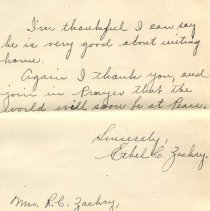 I'm thankful I can say
he is very good about writing
home.
Again I thank you, and
join in Prayer that the
world will soon be at Peace.
Sincerely,
Ethel C. Zachry.
Mrs. R.C. Zachry,